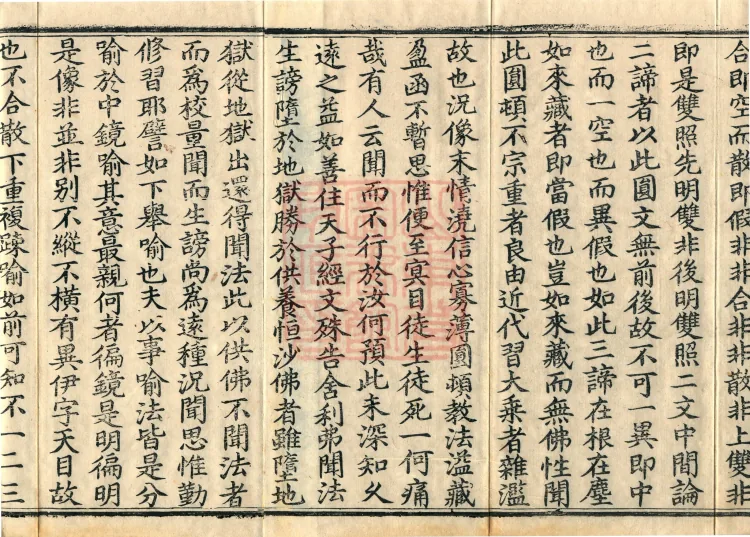 合即空而散即假非非合非非散非上雙非
即是雙照先明雙非後明雙照二文中間論
二諦者以此圓文無前後故不可一異即中
也而一空也而異假也如此三諦在根在塵
如來藏者即當假也豈如來藏而無佛性聞
此圓頓不宗重者良由近代習大乘者雜濫
故也況像末情澆信心寡薄圓頓教法溢藏
盈函不暫思惟便至冥目徒生徒死一何痛
哉有人云聞而不行於汝何預此未深知久
遠之益如善住天子經文殊告舍利弗聞法
生謗墮於地獄勝於供養恒沙佛者雖墮地
獄從地獄出還得聞法此以供佛不聞法者
而為校量聞而生謗尚為遠種況聞思惟勤
修習耶譬如下舉喻也夫以事喻法皆是分
喻於中鏡喻其意最親何者徧鏡是明徧明
是像非並非別不縱不橫有異伊字天目故
也不合散下重複踈喻如前可知不一二三